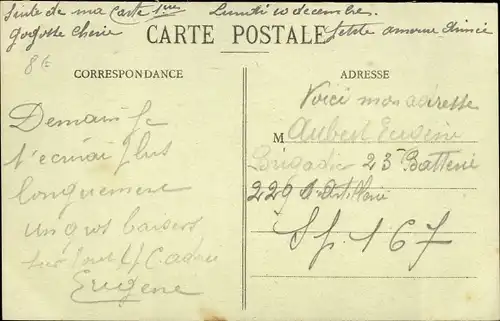 Suite de ma Carte 1ère Lundi 10 decembre.
gogosse cherie
CARTE POSTALE
petite amoureuse
8 te
CORRESPONDANCE
ADRESSE
Voici mon adresse
Demain Je
M Aubert Eugène
t'ecrirai Plus
Brigadier 23e Batterie
longuement
229 Artillerie
un gros baisers
Sp. 167
sur
Eugene